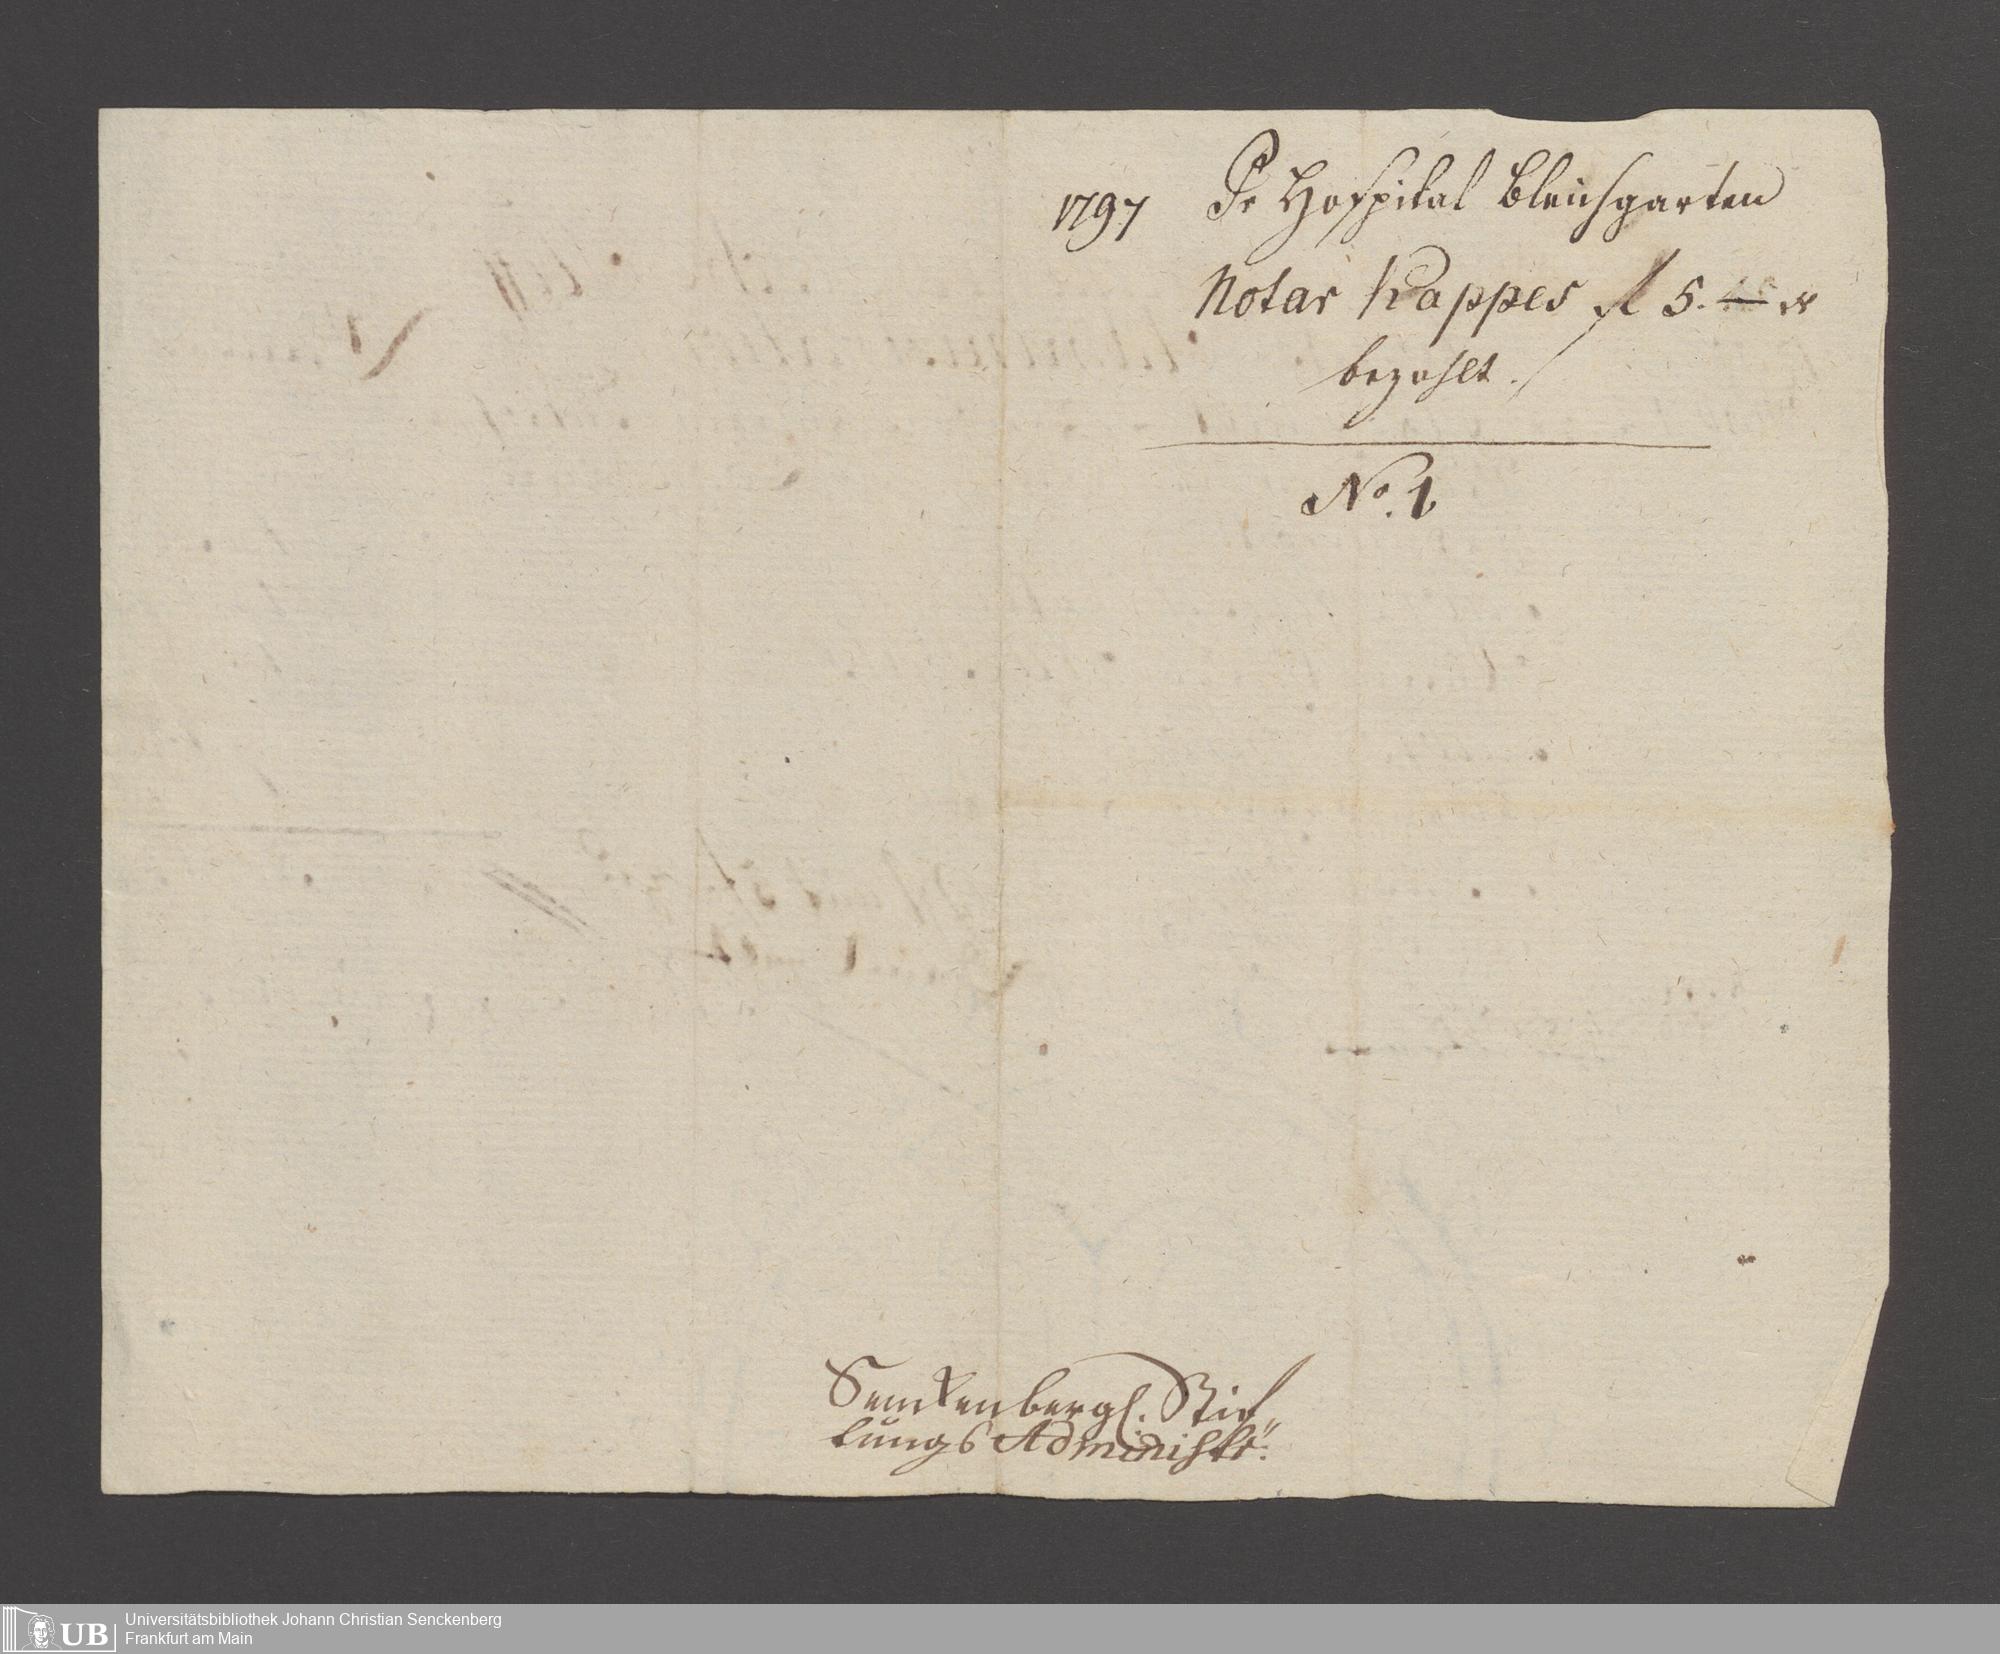 1797 Pr Hospital Bleichgarten
Notar Kappes fl 5. — xr
bezahlt.
No. 1
Senckenbergl. Stif„
tungs Administr:
UB
Universitätsbibliothek Johann Christian Senckenberg
Frankfurt am Main